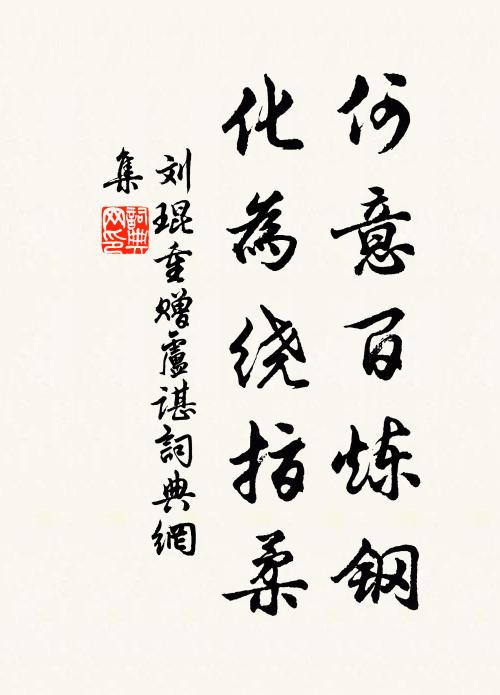 何意百炼钢
化為绕指柔
刘琨重赠盧谌詞典網
集
詞典
网印